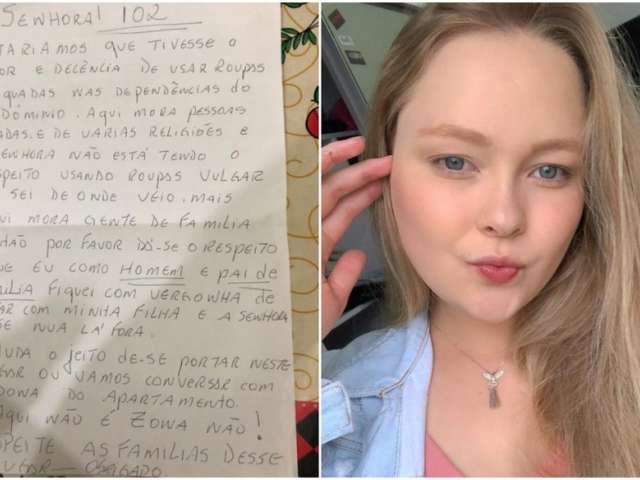 SENHORA! 102
TARIAMOS QUE TIVESSE O
OR E DECÊNCIA DE USAR ROUPAS
QUADAS NAS DEPENDÊNCIAS DO
DOMINIO. AQUI MORA PESSOAS
ADAS. E DE VARIAS RELIGIÕES E
ENHORA NÃO ESTÁ TENDO O
PEITO USANDO ROUPAS VULGAR
SEI DE ONDE VEIO, MAIS
UI MORA GENTE DE FAMILIA
NÃO POR FAVOR DÊ-SE O RESPEITO
UE EU COMO HOMEM E PAI DE
ILIA FIQUEI COM VERGONHA DE
AR COM MINHA FILHA E A SENHORA
SE NUA LÁ FORA.
UDA O JEITO DE-SE PORTAR NESTE
GAR OU VAMOS CONVERSAR COM
DONA DO APARTAMENTO.
AQUI NÃO É ZONA NÃO!
SPEITE AS FAMILIAS DESSE
UGAR OBRIGADO